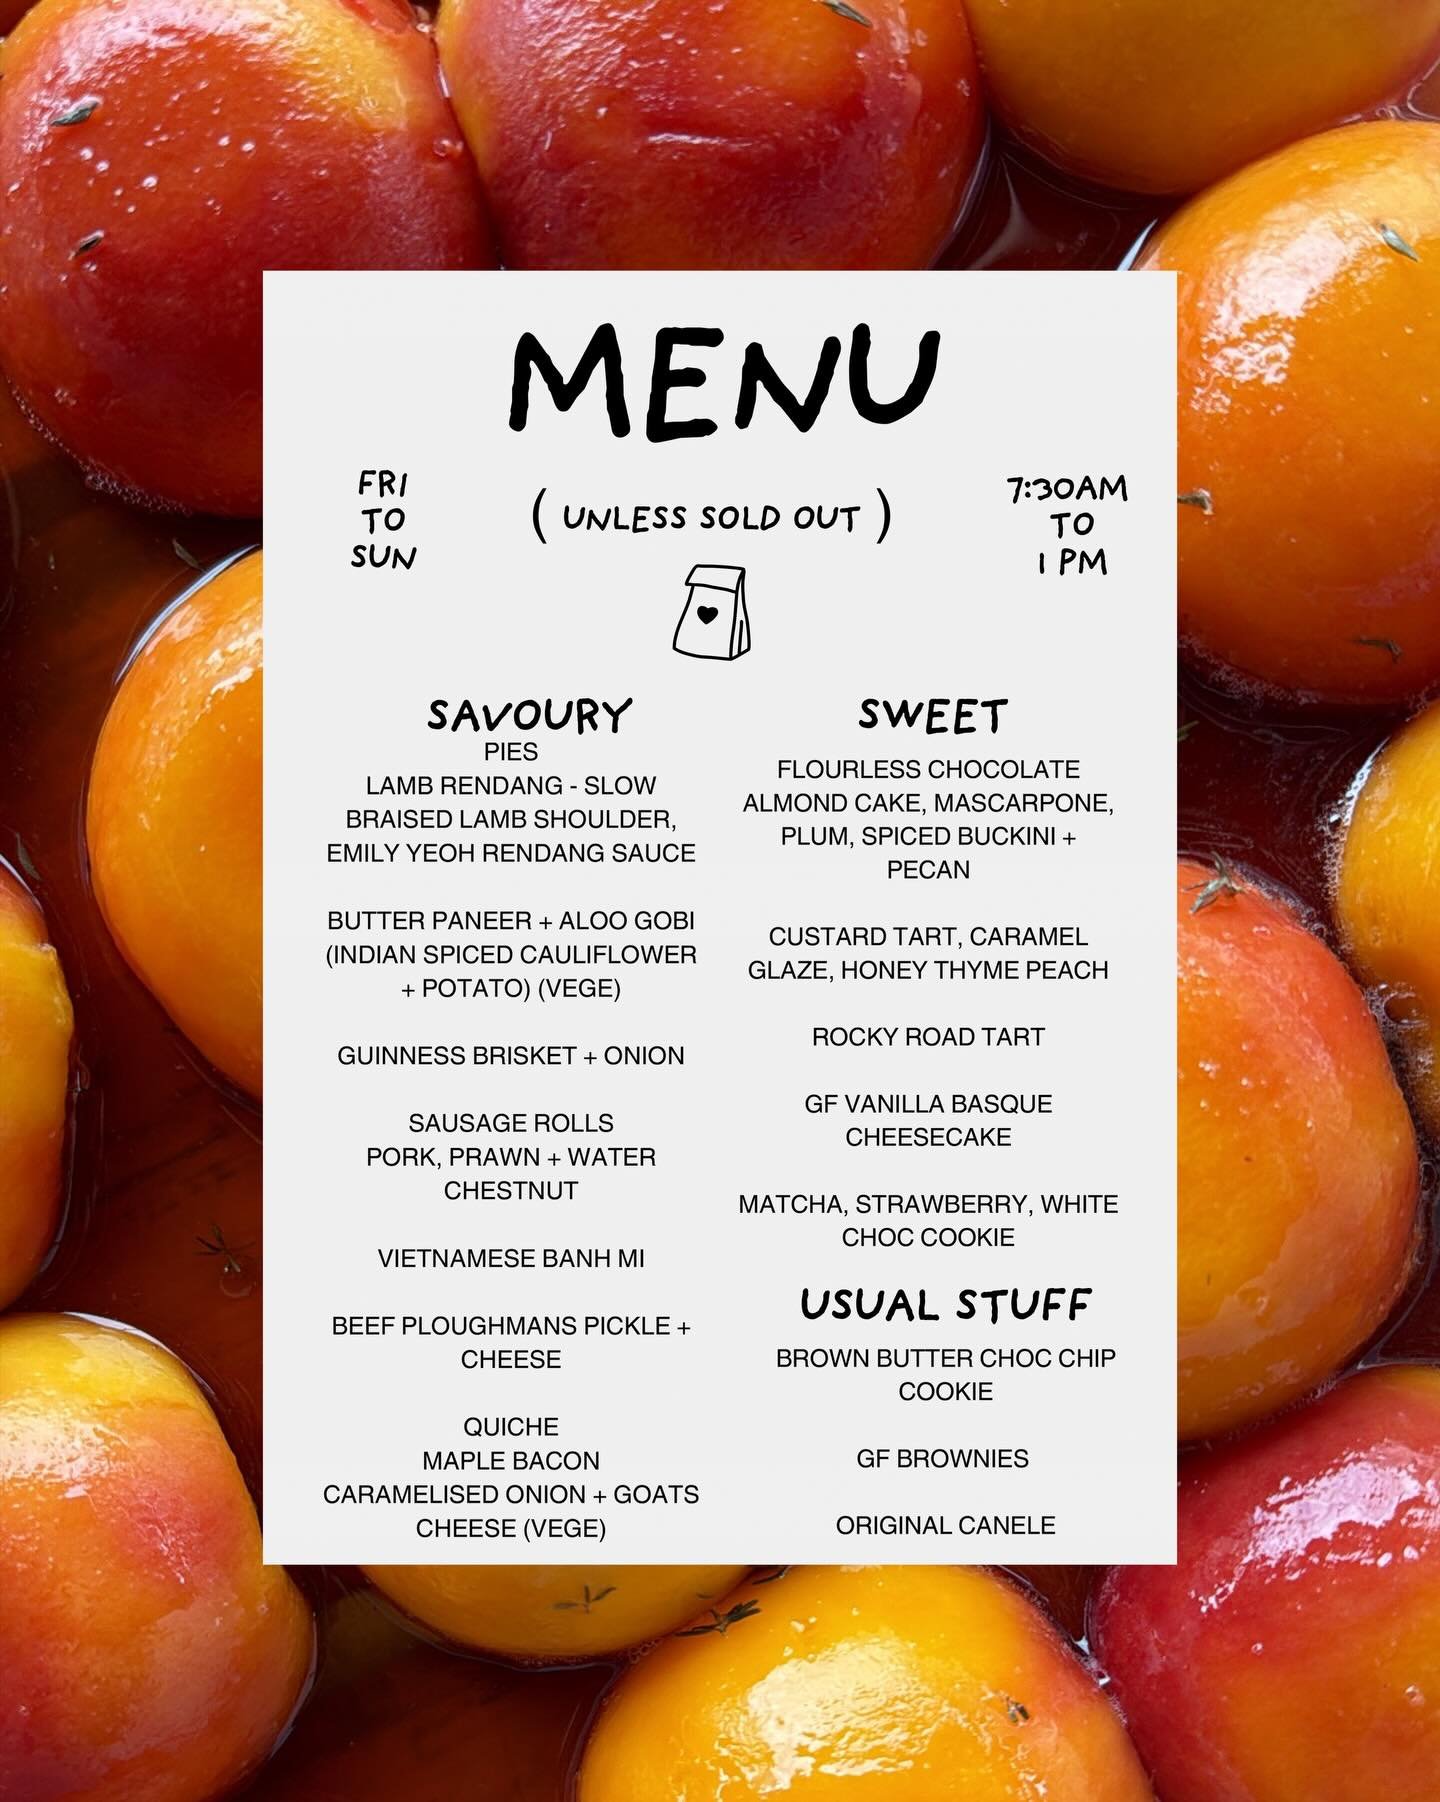 MENU
FRI
TO
SUN
( UNLESS SOLD OUT )
7:30AM
TO
1 PM
SAVOURY
PIES
LAMB RENDANG - SLOW
BRAISED LAMB SHOULDER,
EMILY YEOH RENDANG SAUCE
BUTTER PANEER + ALOO GOBI
(INDIAN SPICED CAULIFLOWER
+ POTATO) (VEGE)
GUINNESS BRISKET + ONION
SAUSAGE ROLLS
PORK, PRAWN + WATER
CHESTNUT
VIETNAMESE BANH MI
BEEF PLOUGHMANS PICKLE +
CHEESE
QUICHE
MAPLE BACON
CARAMELISED ONION + GOATS
CHEESE (VEGE)
SWEET
FLOURLESS CHOCOLATE
ALMOND CAKE, MASCARPONE,
PLUM, SPICED BUCKINI +
PECAN
CUSTARD TART, CARAMEL
GLAZE, HONEY THYME PEACH
ROCKY ROAD TART
GF VANILLA BASQUE
CHEESECAKE
MATCHA, STRAWBERRY, WHITE
CHOC COOKIE
USUAL STUFF
BROWN BUTTER CHOC CHIP
COOKIE
GF BROWNIES
ORIGINAL CANELE